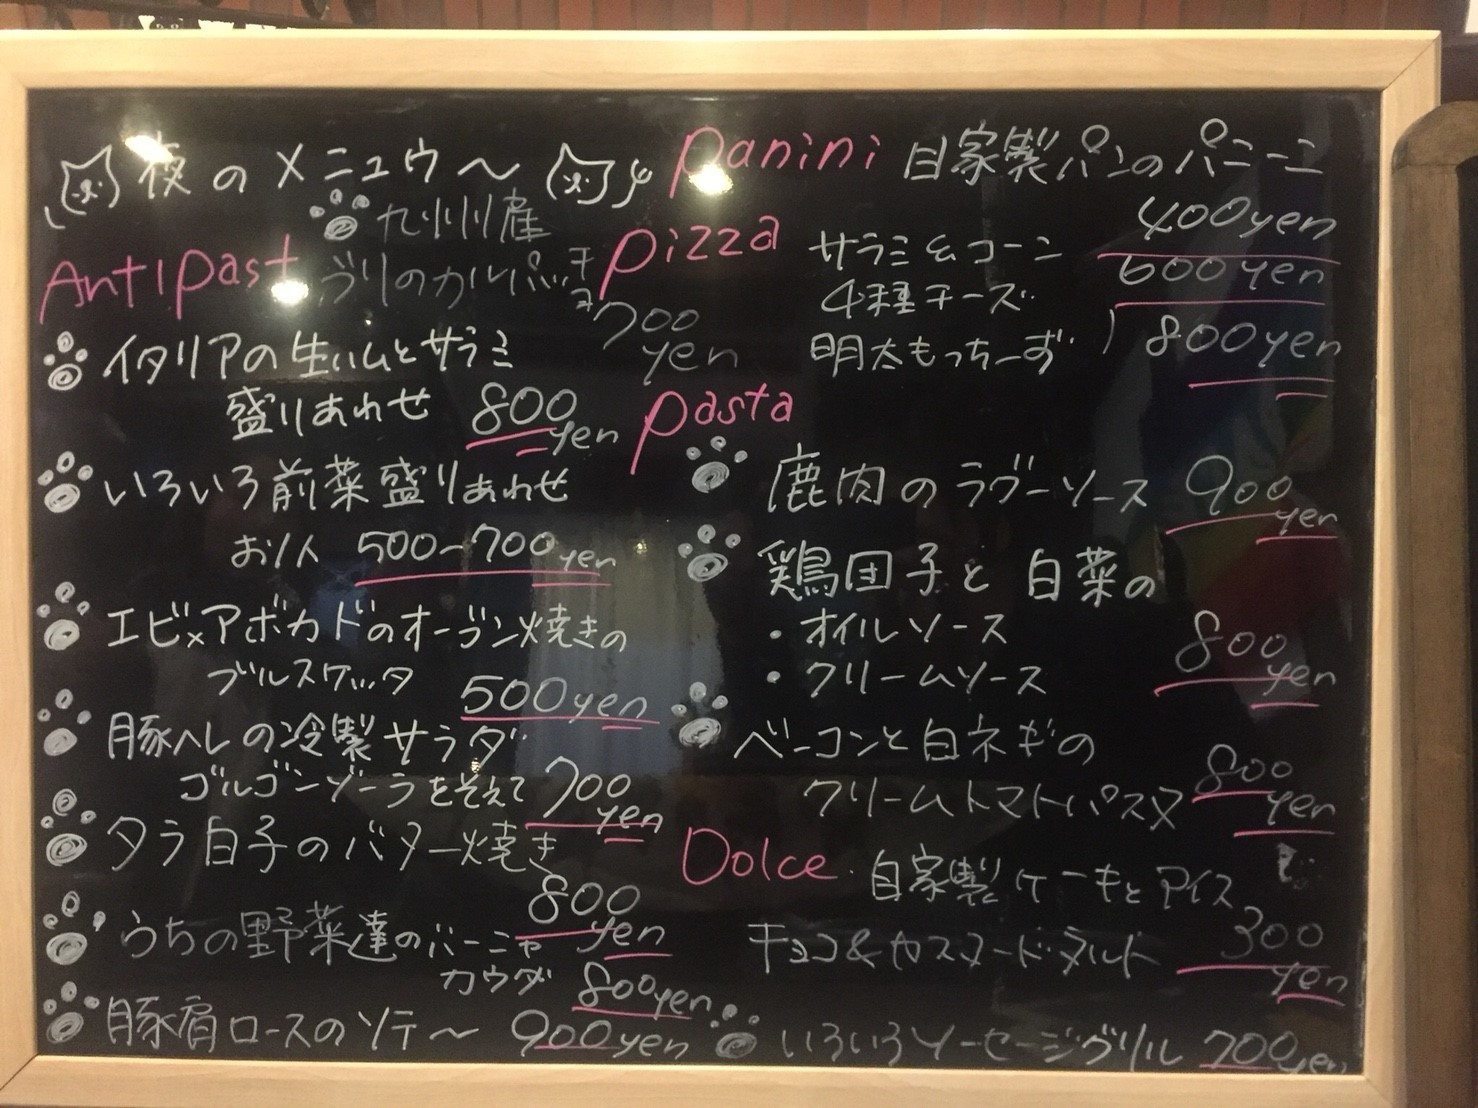 夜のメニュウ〜
Antipast
九州産
ブリのカルパッチョ
700
yen
イタリアの生ハムとサラミ
盛りあわせ 800
yen
いろいろ前菜盛りあわせ
お1人 500〜700yen
エビ×アボカドのオーブン焼きの
ブルスケッタ
500yen
豚ヘレの冷製サラダ
ゴルゴンゾーラをそえて 700
yen
タラ白子のバター焼き
800
yen
うちの野菜達のバーニャ
カウダ 800yen
豚肩ロースのソテ〜 900yen
panini 自家製パンのパニーニ
400yen
pizza サラミ&コーン 600yen
4種チーズ
明太もっちーず 800yen
pasta
鹿肉のラグーソース 900
yen
鶏団子と白菜の
・オイルソース
・クリームソース
800
yen
ベーコンと白ネギの
クリームトマトパスタ 800
yen
Dolce 自家製ケーキとアイス
チョコ&カスタードタルト 300
yen
いろいろソーセージグリル 700yen